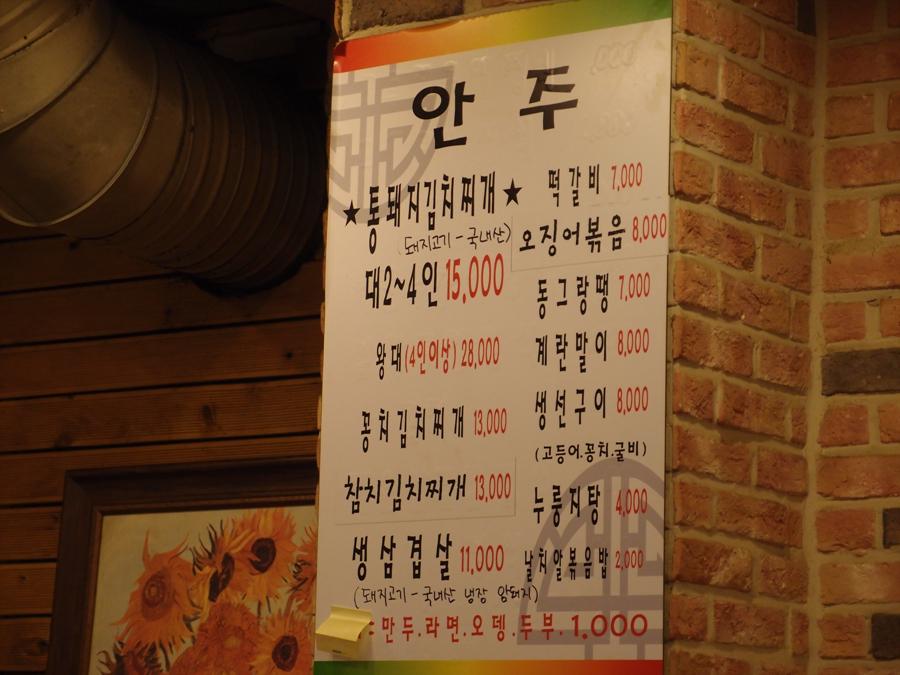 안 주
★통돼지김치찌개★
(돼지고기-국내산)
대2~4인 15,000
왕대(4인이상) 28,000
꽁치김치찌개 13,000
참치김치찌개 13,000
생삼겹살 11,000
(돼지고기-국내산 냉장 암돼지)
떡갈비 7,000
오징어볶음 8,000
동그랑땡 7,000
계란말이 8,000
생선구이 8,000
(고등어.꽁치.굴비)
누룽지탕 4,000
날치알볶음밥 2,000
만두.라면.오뎅.두부.1,000